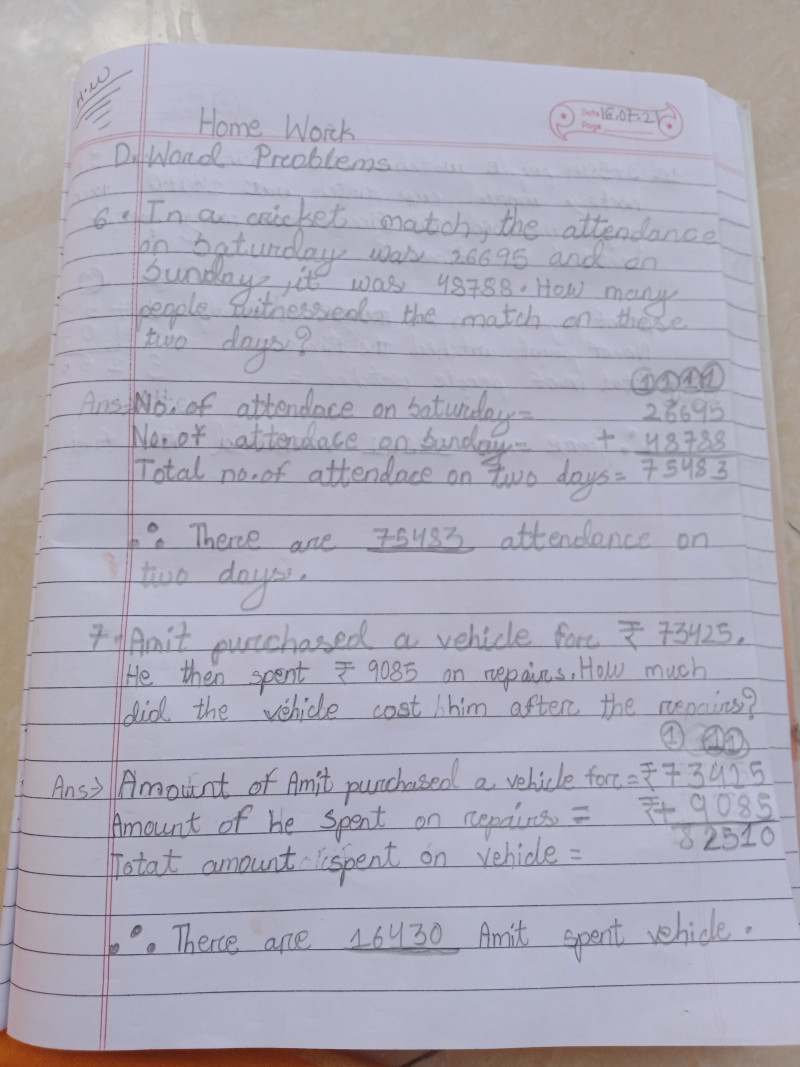 H.W
Date 16.07.21
Page
Home Work
D. Word Problems
6. In a cricket match, the attendance
on Saturday was 26695 and on
Sunday, it was 48788. How many
people witnessed the match on these
two days?
1 1 1 1
Ans→ No. of attendace on Saturday= 26695
No. of attendace on Sunday= + 48788
Total no. of attendace on two days= 75483
∴ There are 75483 attendance on
two days.
7. Amit purchased a vehicle for ₹ 73425.
He then spent ₹ 9085 on repairs. How much
did the vehicle cost him after the repairs?
1 1 1
Ans→ Amount of Amit purchased a vehicle for = ₹73425
Amount of he spent on repairs = ₹+ 9085
Totat amount spent on vehicle = 82510
∴ There are 16430 Amit spent vehicle.